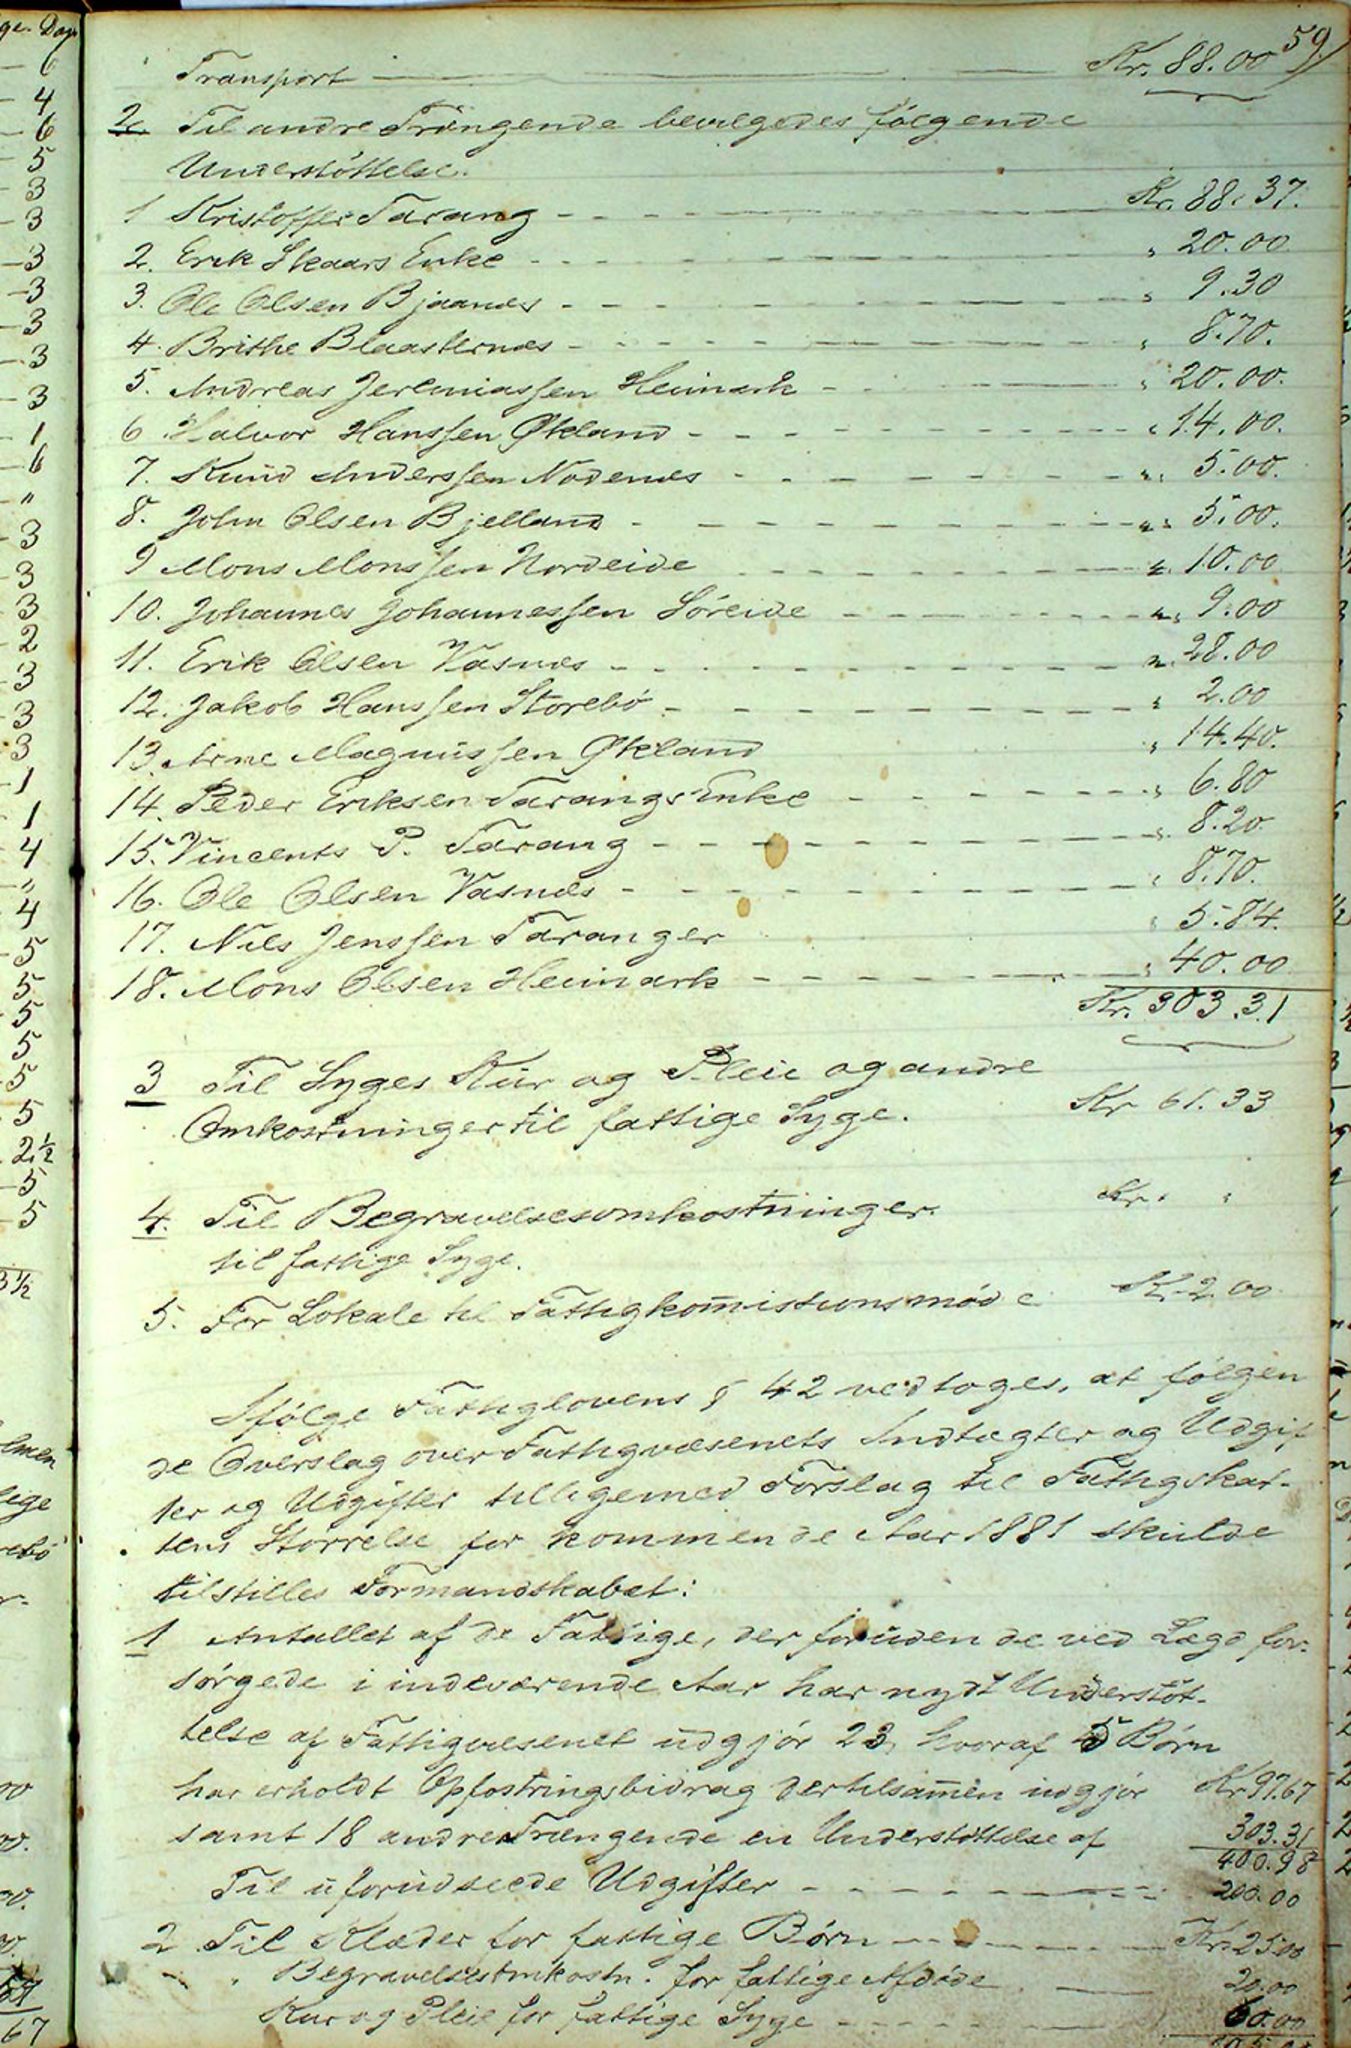 59
Transport — Kr. 88.00
2. Til andre Trængende bevilgedes følgende
Understøttelse.
1 Kristoffer Tarang - Kr. 88.37.
2. Erik Skaars Enke - " 20.00
3. Ole Olsen Bjaanæs - " 9.30
4. Brithe Blaasternæs - " 8.70.
5. Andreas Jeremiassen Heimark - " 20.00.
6 Halvor Hanssen Økland - " 14.00.
7. Knud Anderssen Nodenæs - " 5.00.
8. John Olsen Bjelland - " 5.00.
9 Mons Monssen Nordeide - " 10.00
10. Johannes Johannessen Søreide - " 9.00
11. Erik Olsen Vasnæs - " 28.00
12. Jakob Hanssen Storebø - " 2.00
13. Arne Magnussen Økland " 14.40.
14. Peder Eriksen Tarangs Enke - " 6.80
15. Vincents P. Tarang - " 8.20.
16. Ole Olsen Vasnæs - " 8.70.
17. Nils Jenssen Taranger " 5.84.
18. Mons Olsen Heimark - " 40.00
Kr. 303.31
3 Til Syges Kur og Pleie og andre
Omkostninger til fattige Syge. Kr 61.33
4. Til Begravelsesomkostninger Kr. "
til fattige Syge.
5. For Lokale til Fattigkommissionsmøde Kr 2.00
Ifølge Fattiglovens § 42 vedtoges, at følgen
de Overslag over Fattigvæsenets Indtægter og Udgif
ter og Udgifter tilligemed Forslag til Fattigskat-
tens Størrelse for kommende Aar 1881 skulde
tilstilles Formandskabet:
1 Antallet af de Fattige, der foruden de ved Lægd for-
sørgede i indeværende Aar har nydt Understøt-
telse af Fattigvæsenet udgjør 23, hvoraf 5 Børn
har erholdt Opfostringsbidrag der tilsammen udgjør Kr 97.67
samt 18 andre Trængende en Understøttelse af 303.31
400.98
Til uforudseede Udgifter - 200.00
2 Til Klæder for fattige Børn - Kr. 25.00
" Begravelsesomkostn. for fattige Afdøde - 20.00
Kur og Pleie for fattige Syge - 60.00